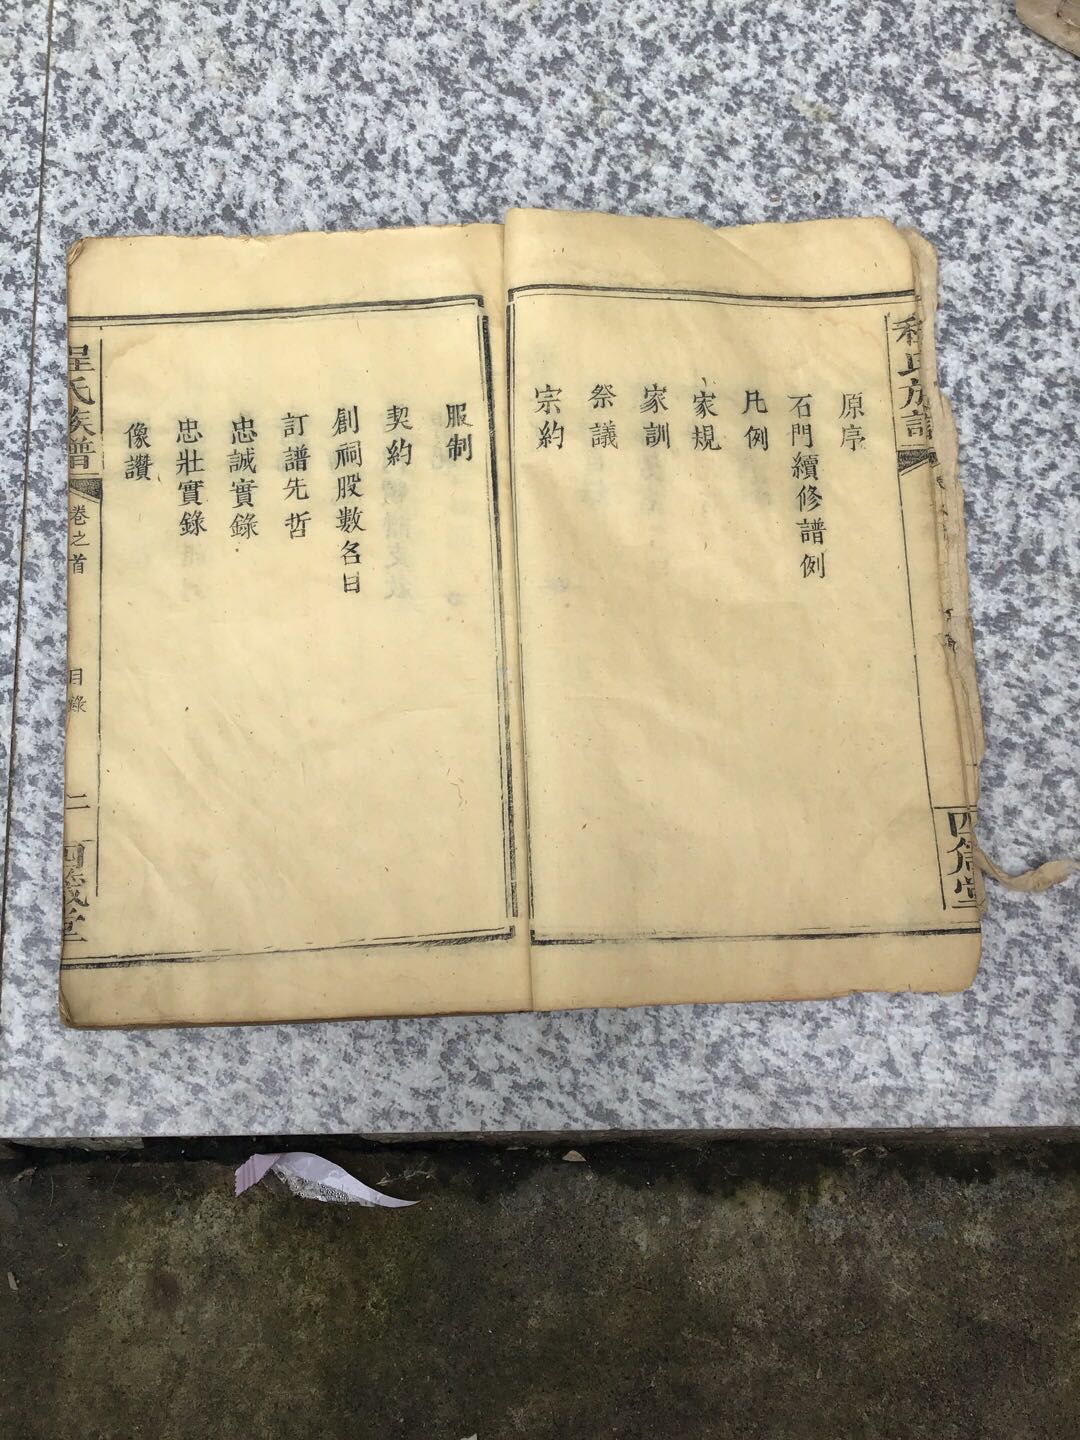 程氏族譜
四箴堂
原序
石門續修譜例
凡例
家規
家訓
祭議
宗約
服制
契約
創祠股數名目
訂譜先哲
忠誠實錄
忠壯實錄
像讚
程氏族譜
卷之首
目錄
二
四箴堂